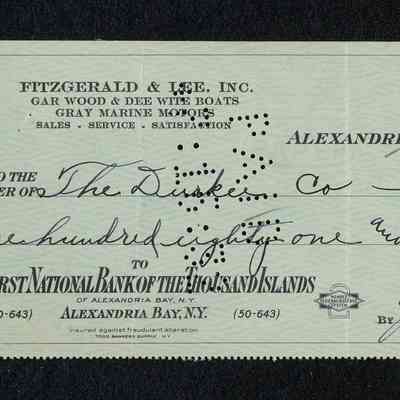 FITZGERALD & LEE, INC.
GAR WOOD & DEE WITE BOATS
GRAY MARINE MOTORS
SALES - SERVICE - SATISFACTION
ALEXANDRIA
TO THE
ER OF The Durkee Co
hundred eighty one and
TO
IRST NATIONAL BANK OF THE THOUSAND ISLANDS
OF ALEXANDRIA BAY, N.Y.
0-643) ALEXANDRIA BAY, N.Y. (50-643)
BY
Insured against fraudulent alteration
TODD BANKERS SUPPLY N.Y.